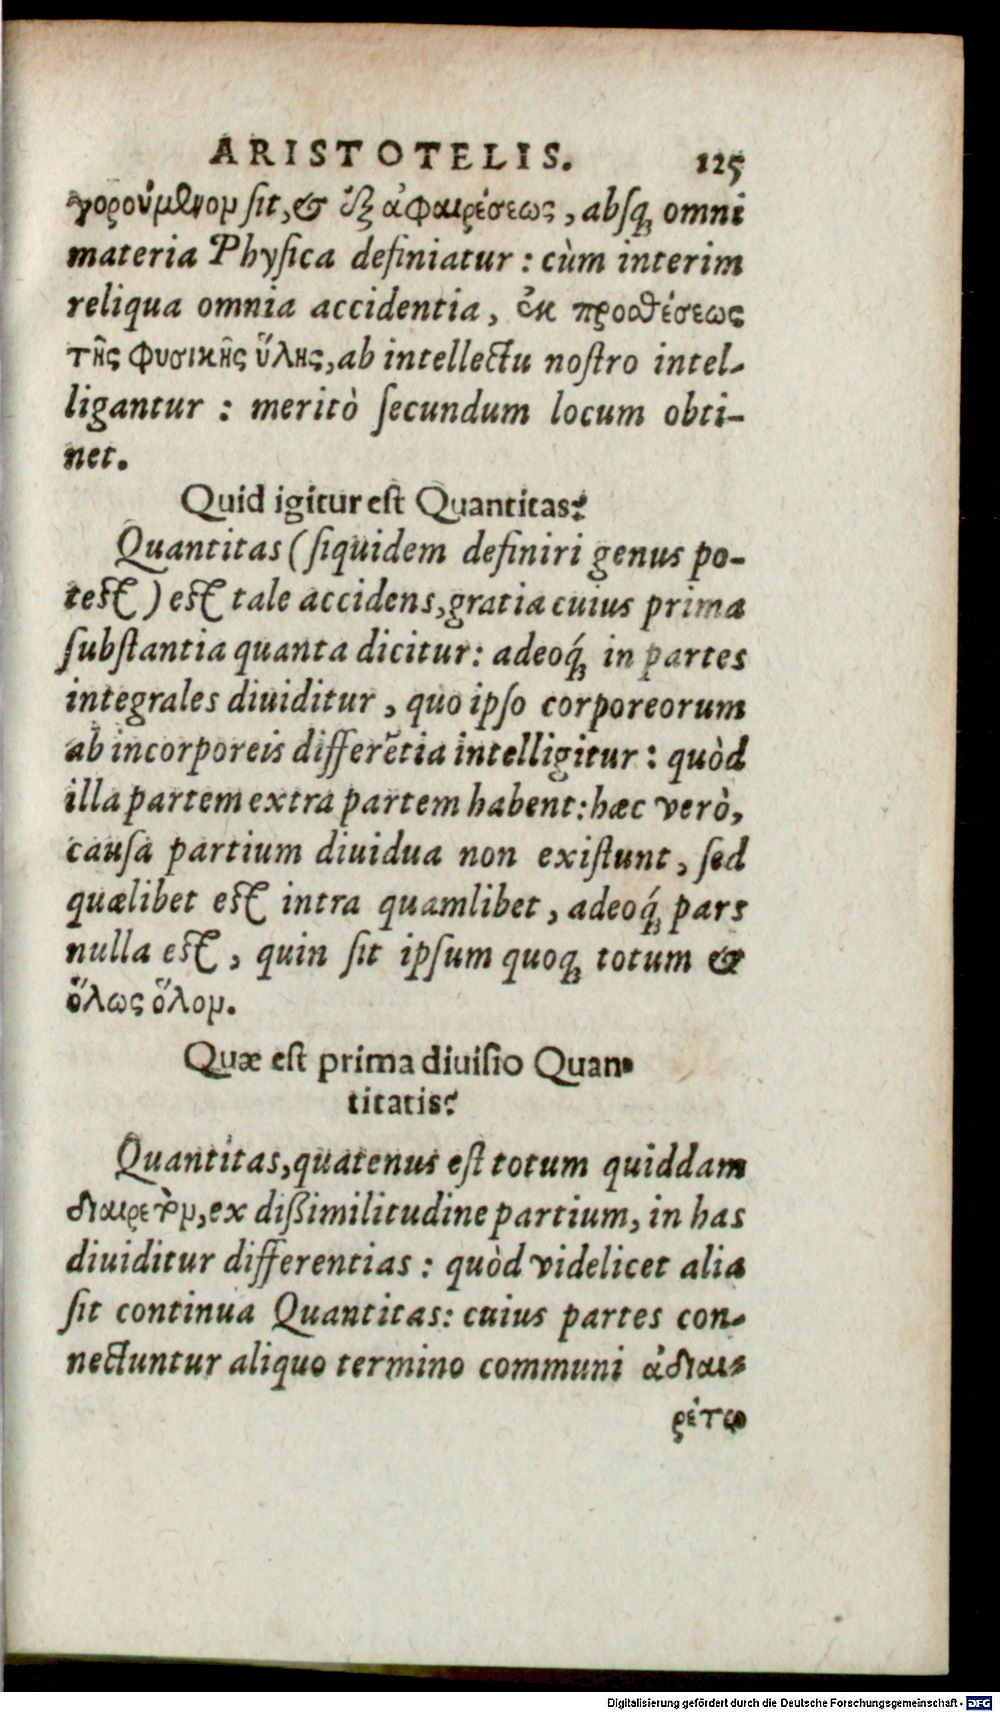 ARISTOTELIS. 125
γορούμϑνον sit, & ἐξ ἀφαιρέσεως, absq; omni
materia Physica definiatur : cùm interim
reliqua omnia accidentia, ἐκ προσθέσεως
τῆς φυσικῆς ὕλης, ab intellectu nostro intel-
ligantur : meritò secundum locum obti-
net.
Quid igitur est Quantitas?
Quantitas (siquidem definiri genus po-
test) est tale accidens, gratia cuius prima
substantia quanta dicitur: adeoq́; in partes
integrales diuiditur, quo ipso corporeorum
ab incorporeis differẽtia intelligitur: quòd
illa partem extra partem habent: hæc verò,
causa partium diuidua non existunt, sed
quælibet est intra quamlibet, adeoq́; pars
nulla est, quin sit ipsum quoq; totum &
ὅλως ὅλον.
Quæ est prima diuisio Quan-
titatis?
Quantitas, quatenus est totum quiddam
διαιρετὸν, ex dißimilitudine partium, in has
diuiditur differentias : quòd videlicet alia
sit continua Quantitas: cuius partes con-
nectuntur aliquo termino communi ἀδιαι-
ρέτῳ
Digitalisierung gefördert durch die Deutsche Forschungsgemeinschaft - DFG